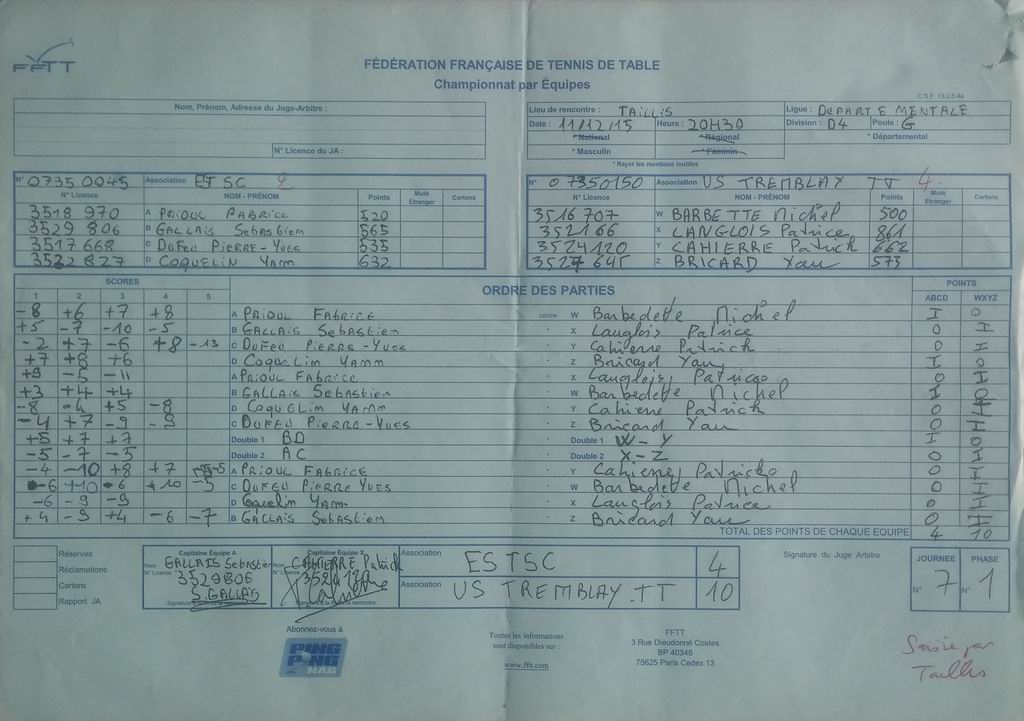 FFTT
FÉDÉRATION FRANÇAISE DE TENNIS DE TABLE
Championnat par Équipes
C.S.F. 13.2.0.4a
Nom, Prénom, Adresse du Juge-Arbitre :
N° Licence du JA :
Lieu de rencontre : TAILLIS Ligue : DEPARTEMENTALE
Date : 11/12/15 Heure : 20H30 Division : D4 Poule : G
* National * Régional * Départemental
* Masculin * Féminin
* Rayer les mentions inutiles
N° 0735 0045 Association ESTSC
N° Licence NOM - PRÉNOM Points Muté Etranger Cartons
3518 970 A PRIOUL FABRICE 520
3529 806 B GALLAIS Sebastien 565
3517 668 C DUFEU PIERRE-YVES 535
3532 827 D COQUELIN YANN 632
N° 07350150 Association US TREMBLAY TT 4
N° Licence NOM - PRÉNOM Points Muté Etranger Cartons
3516 707 W BARBETTE Michel 500
352166 X LANGLOIS Patrice 861
3524120 Y CAHIERRE Patrick 662
3527 645 Z BRICARD Yau 573
SCORES ORDRE DES PARTIES POINTS
1 2 3 4 5 ABCD WXYZ
-8 +6 +7 +8 A PRIOUL FABRICE contre W Barbedette Michel I 0
+5 -7 -10 -5 B GALLAIS Sebastien X Langlois Patrice 0 I
-2 +7 -6 +8 -13 C DUFEU PIERRE-YVES Y Cahierre Patrick 0 I
+7 +8 +6 D Coquelin YANN Z Bricard Yau I 0
+9 -5 -11 A PRIOUL FABRICE X Langlois Patrice 0 I
+3 +4 +4 B GALLAIS Sebastien W Barbedette Michel I 0
-8 -4 +5 -8 D COQUELIN YANN Y Cahierre Patrick 0 I
-4 +7 -9 -9 C DUFEU PIERRE-YVES Z Bricard Yau 0 I
+5 +7 +7 Double 1 BD Double 1 W-Y I 0
-5 -7 -5 Double 2 AC Double 2 X-Z 0 I
-4 -10 +8 +7 -5 A PRIOUL FABRICE Y Cahierre Patrick 0 I
-6 +10 6 +10 -5 C DUFEU PIERRE YVES W Barbedette Michel 0 I
-6 -9 -9 D Coquelin YANN X Langlois Patrice 0 I
+4 -9 +4 -6 -7 B GALLAIS Sebastien Z Bricard Yau 0 I
TOTAL DES POINTS DE CHAQUE EQUIPE 4 10
Réserves
Réclamations
Cartons
Rapport JA
Capitaine Équipe A
Nom GALLAIS Sebastien
N° Licence 3529806
S.GALLAIS
Signature à la fin de la rencontre
Capitaine Équipe X
Nom CAHIERRE Patrick
N° Licence 3524120
Signature à la fin de la rencontre
Association ESTSC 4
Association US TREMBLAY.TT 10
Signature du Juge Arbitre
JOURNEE PHASE
N° 7 N° 1
Abonnez-vous à
PING PONG MAG
Toutes les informations
sont disponibles sur :
www.fftt.com
FFTT
3 Rue Dieudonné Costes
BP 40348
75625 Paris Cedex 13
Saisie par
Taillis